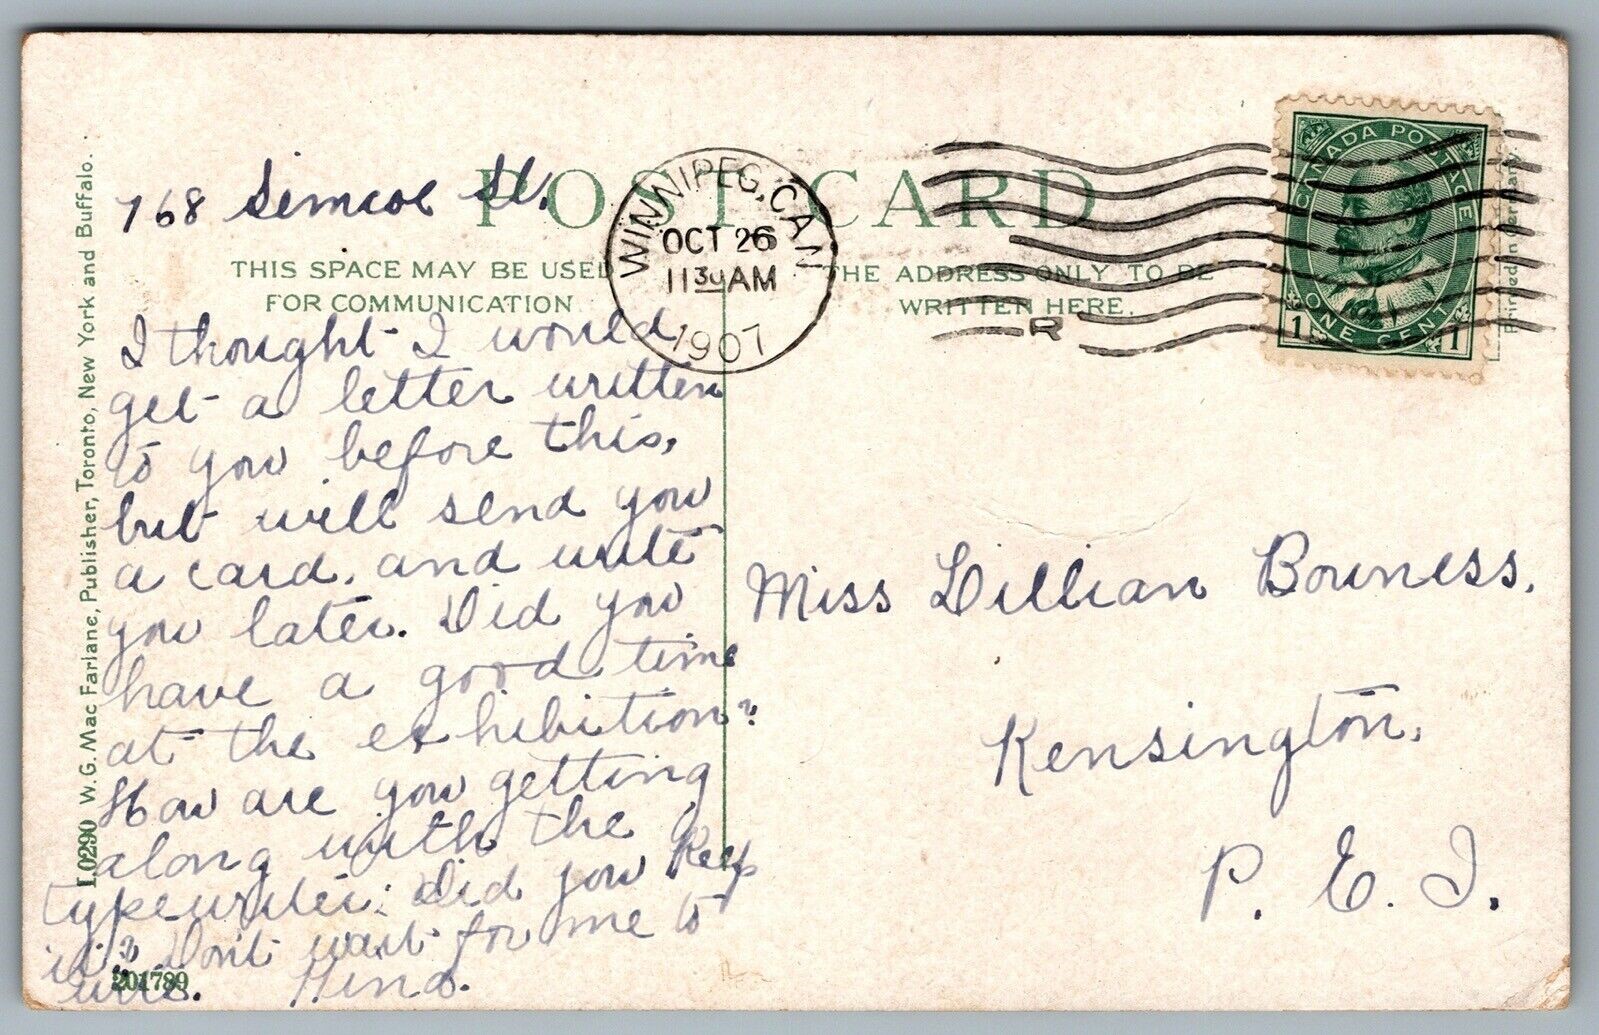 POST CARD
THIS SPACE MAY BE USED
FOR COMMUNICATION
THE ADDRESS ONLY TO BE
WRITTEN HERE.
WINNIPEG, CAN
OCT 26
11 30 AM
1907
R
CANADA POSTAGE
ONE CENT
1 1
Printed in Germany.
L0290 W. G. Mac Farlane, Publisher, Toronto, New York and Buffalo.
768 Simcoe St.
I thought I would
get a letter written
to you before this,
but will send you
a card, and write
you later. Did you
have a good time
at the exhibition?
How are you getting
along with the
typewriter. Did you keep
it? Don't wait for me to
write. Hina.
201789
Miss Lillian Bowness,
Kensington,
P. E. I.